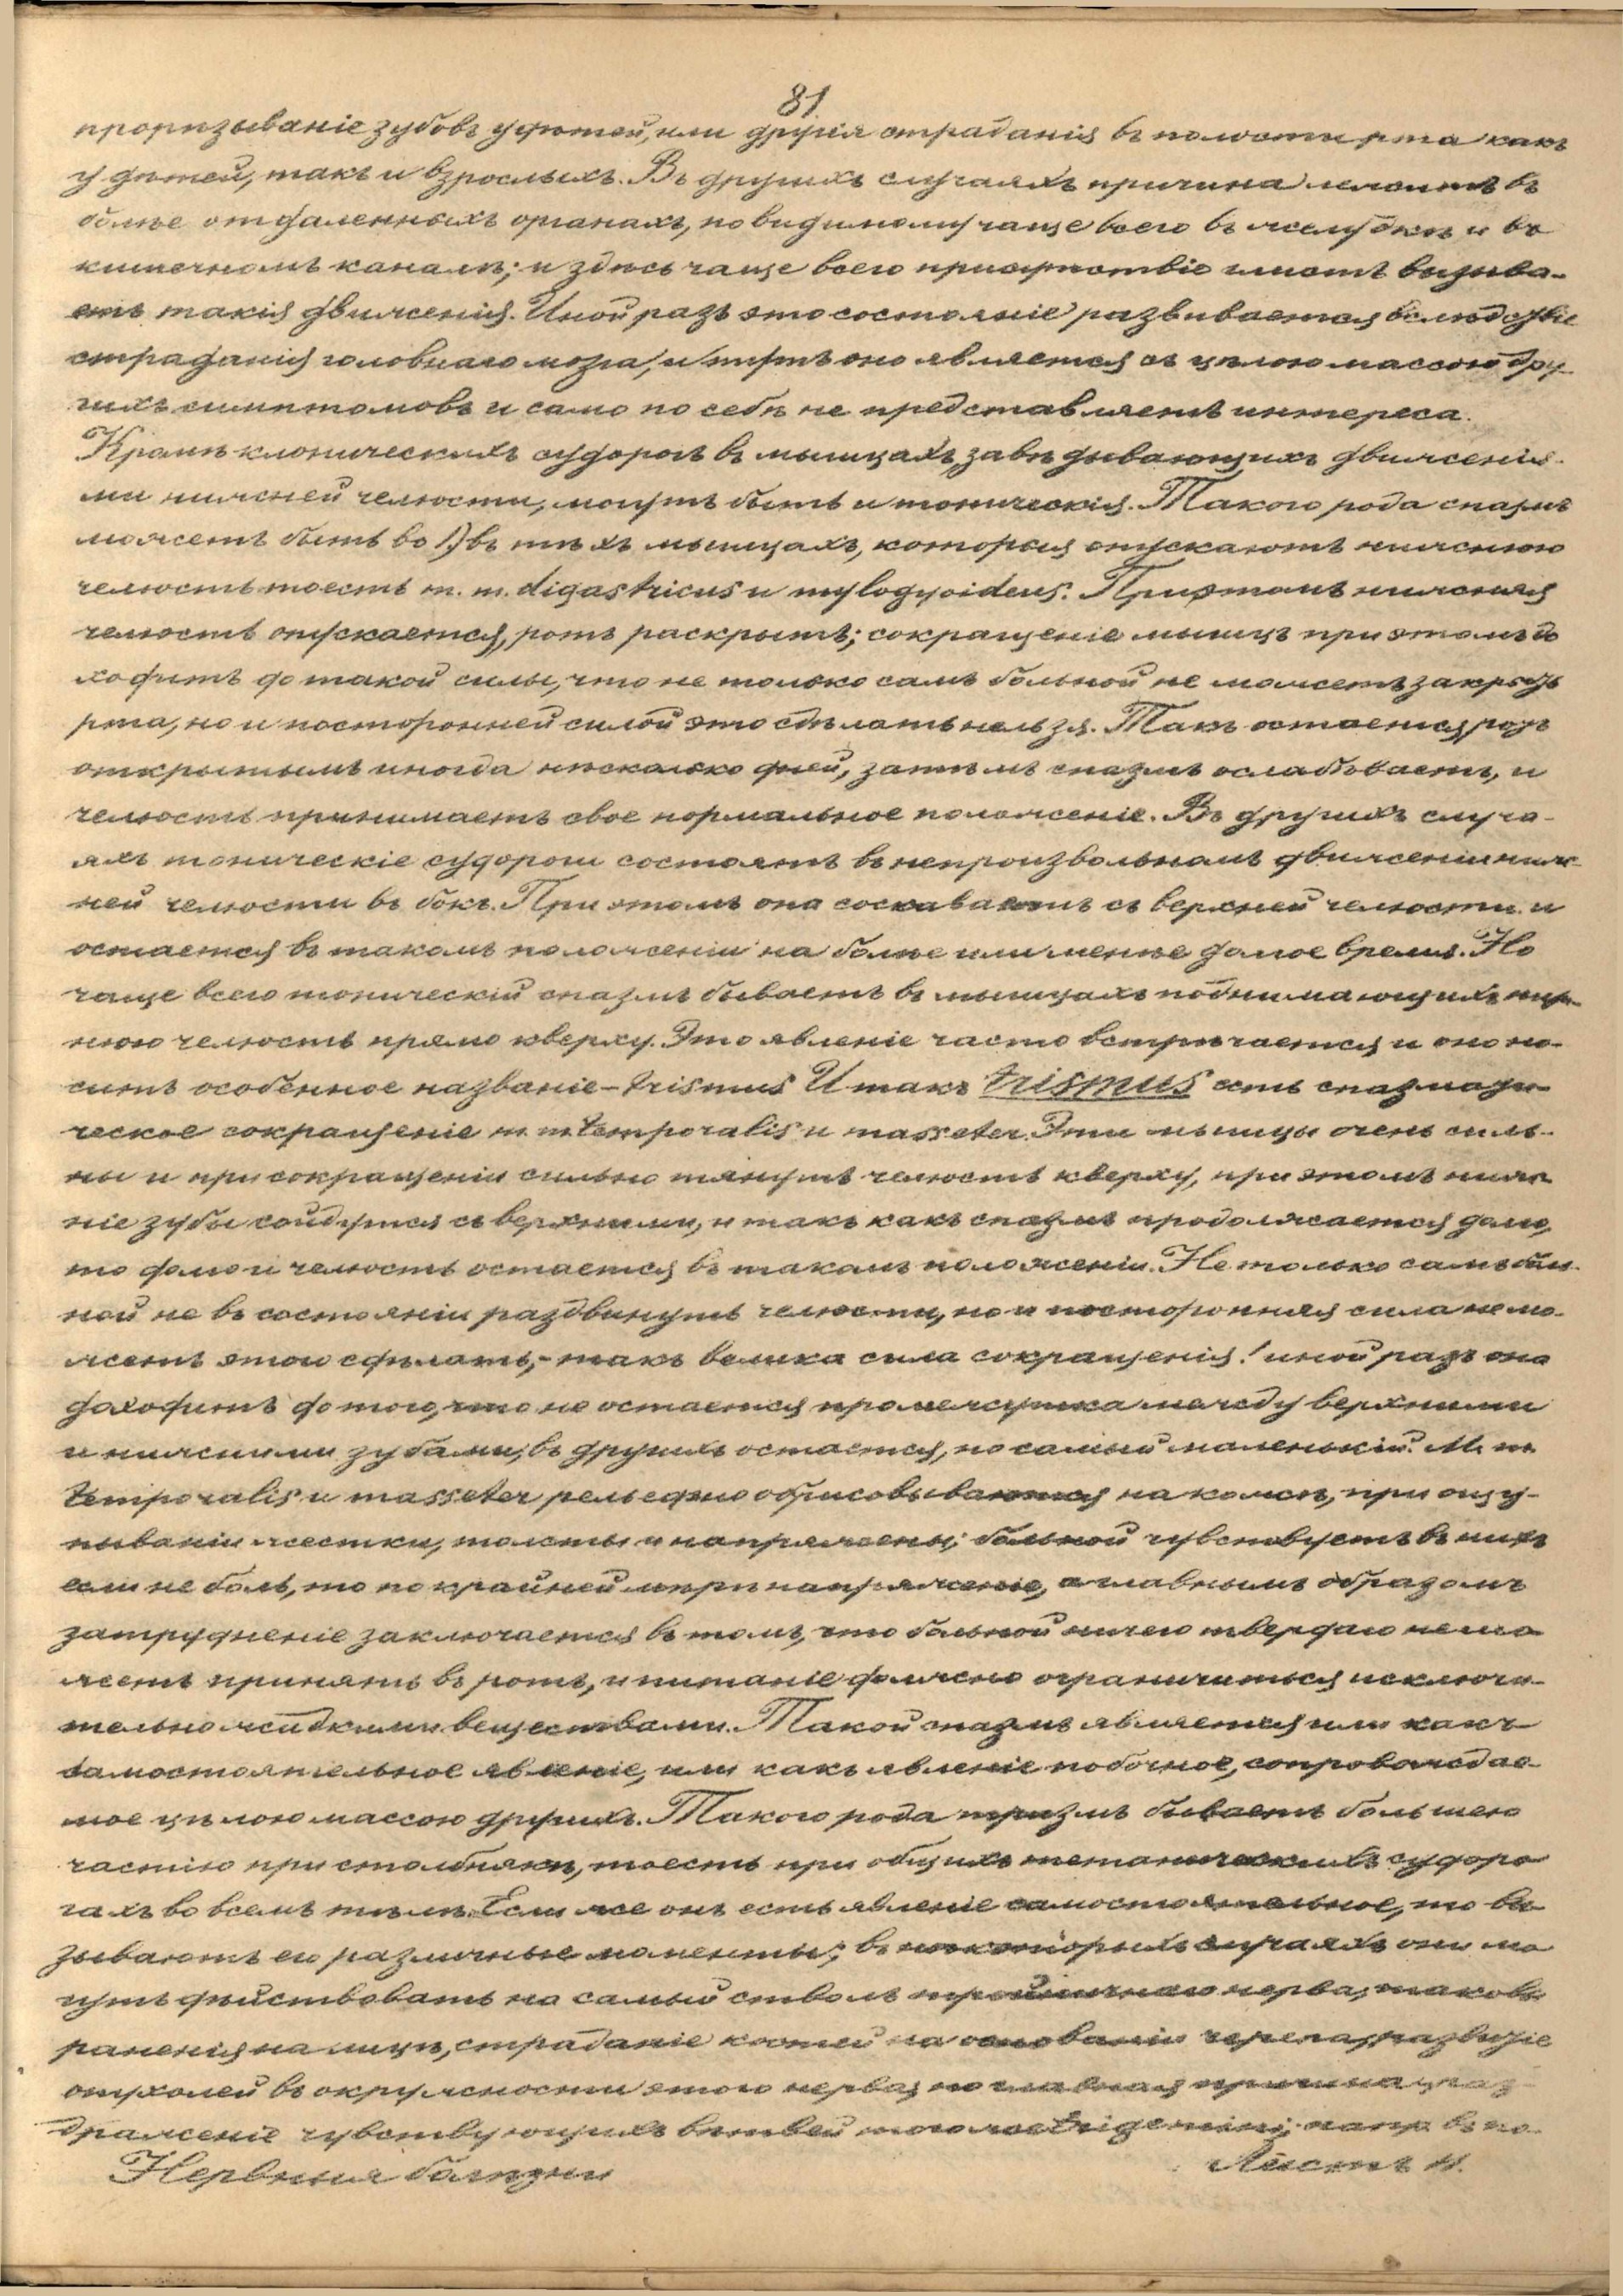 81
прорѣзываніе зубовъ у дѣтей, или другія страданія въ полости рта какъ
у дѣтей, такъ и взрослыхъ. Въ другихъ случаяхъ причина лежитъ въ
болѣе отдаленныхъ органахъ, по видимому чаще всего въ желудкѣ и въ
кишечномъ каналѣ; и здѣсь чаще всего присутствіе глистъ вызыва-
етъ такія движенія. Иной разъ это состояніе развивается вслѣдствіе
страданія головнаго мозга, и тутъ оно является съ цѣлою массою дру-
гихъ симптомовъ и само по себѣ не представляетъ интереса.
Кромѣ клоническихъ судорогъ въ мышцахъ, завѣдывающихъ движенія-
ми нижней челюсти, могутъ быть и тоническія. Такого рода спазмъ
можетъ быть во 1) въ тѣхъ мышцахъ, которыя опускаютъ нижнюю
челюсть тоесть m. m. digastricus и mylogyoideus. При этомъ нижняя
челюсть опускается, ротъ раскрытъ; сокращеніе мышцъ при этомъ до
ходитъ до такой силы, что не только самъ больной не можетъ закрыть
рта, но и посторонней силой это сдѣлать нельзя. Такъ остается ротъ
открытымъ иногда нѣсколько дней, затѣмъ спазмъ ослабѣваетъ, и
челюсть принимаетъ свое нормальное положеніе. Въ другихъ случа-
яхъ тоническіе судороги состоятъ въ непроизвольномъ движеніи ниж-
ней челюсти въ бокъ. При этомъ она соскакиваетъ съ верхней челюсти и
остается въ такомъ положеніи на болѣе или менѣе долгое время. Но
чаще всего тоническій спазмъ бываетъ въ мышцахъ поднимающихъ ниж-
нюю челюсть прямо кверху. Это явленіе часто встрѣчается и оно но-
ситъ особенное названіе – trismus. И такъ trismus есть спазмати-
ческое сокращеніе m. m. temporalis и masseter. Эти мышцы очень силь-
ны и при сокращеніи сильно тянутъ челюсть кверху, при этомъ ниж-
ніе зубы сойдутся съ верхними, и такъ какъ спазмъ продолжается долго,
то долго и челюсть остается въ такомъ положеніи. Не только самъ боль-
ной не въ состояніи раздвинуть челюсти, но и посторонняя сила не мо-
жетъ этого сдѣлать, – такъ велика сила сокращенія! иной разъ она
доходитъ до того, что не остается промежутка между верхними
и нижними зубами, въ другихъ остается, но самый маленькій. M. m.
temporalis и masseter рельефно обрисовываются на кожѣ, при ощу-
пываніи жестки, толсты и напряжены; больной чувствуетъ въ нихъ
если не боль, то по крайней мѣрѣ напряженіе, а главнымъ образомъ
затрудненіе заключается въ томъ, что больной ничего твердаго не мо
жетъ принять въ ротъ, и питаніе должно ограничиться исключи-
тельно жидкими веществами. Такой спазмъ является или какъ
самостоятельное явленіе, или какъ явленіе побочное, сопровождае-
мое цѣлою массою другихъ. Такого рода тризмъ бываетъ большею
частію при столбнякѣ, тоесть при общихъ тетаническихъ судоро
гахъ во всемъ тѣлѣ. Если же онъ есть явленіе самостоятельное, то вы
зываютъ его различные моменты; въ нѣкоторыхъ случаяхъ они мо
гутъ дѣйствовать на самый стволъ тройничнаго нерва, таковы
раненія на лицѣ, страданіе костей на основаніи черепа, развитіе
опухолей въ окружности этого нерва; но главная причина раз-
драженіе чувствующихъ вѣтвей того же trigemini, напр. въ по-
Нервныя болѣзни
Листъ 11.